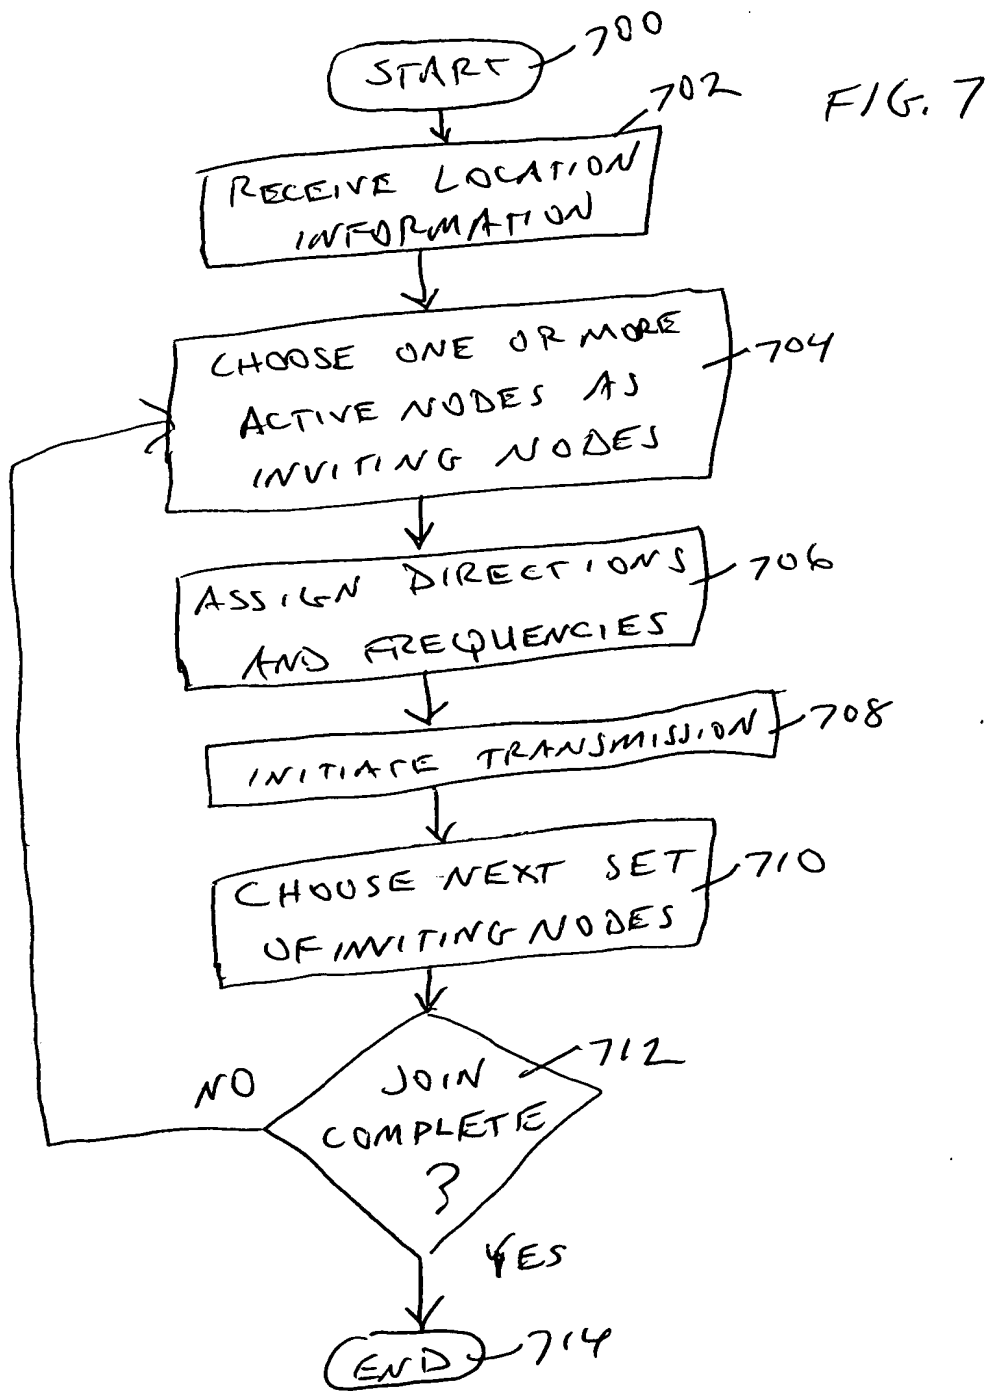 START
700
FIG. 7
702
RECEIVE LOCATION
INFORMATION
CHOOSE ONE OR MORE
704
ACTIVE NODES AS
INVITING NODES
ASSIGN DIRECTIONS
706
AND FREQUENCIES
708
INITIATE TRANSMISSION
CHOOSE NEXT SET
710
OF INVITING NODES
712
JOIN
NO
COMPLETE
?
YES
END
714